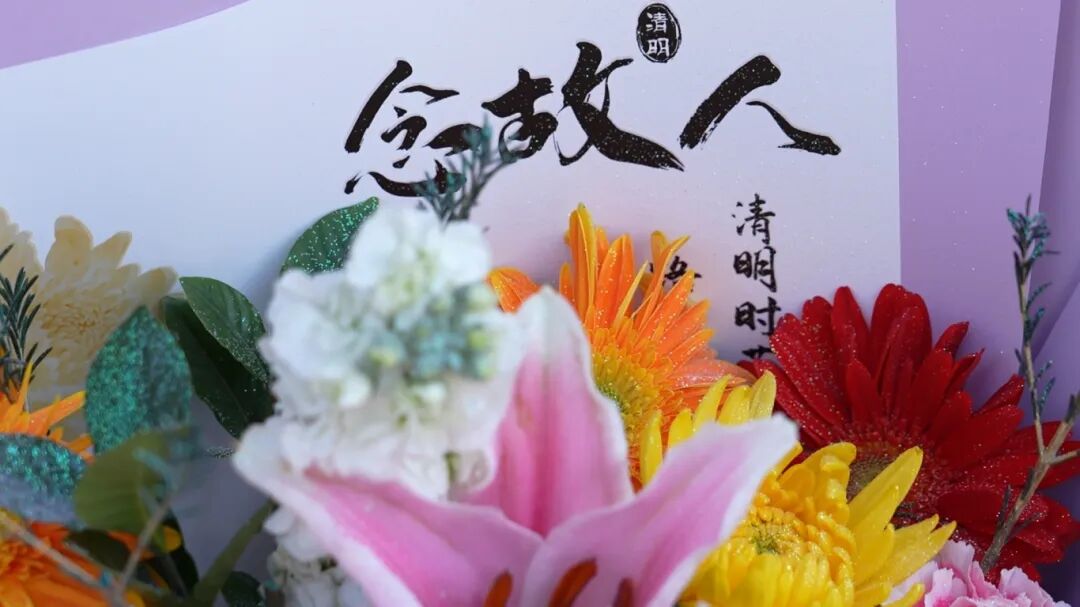 清明
念故人
清明时